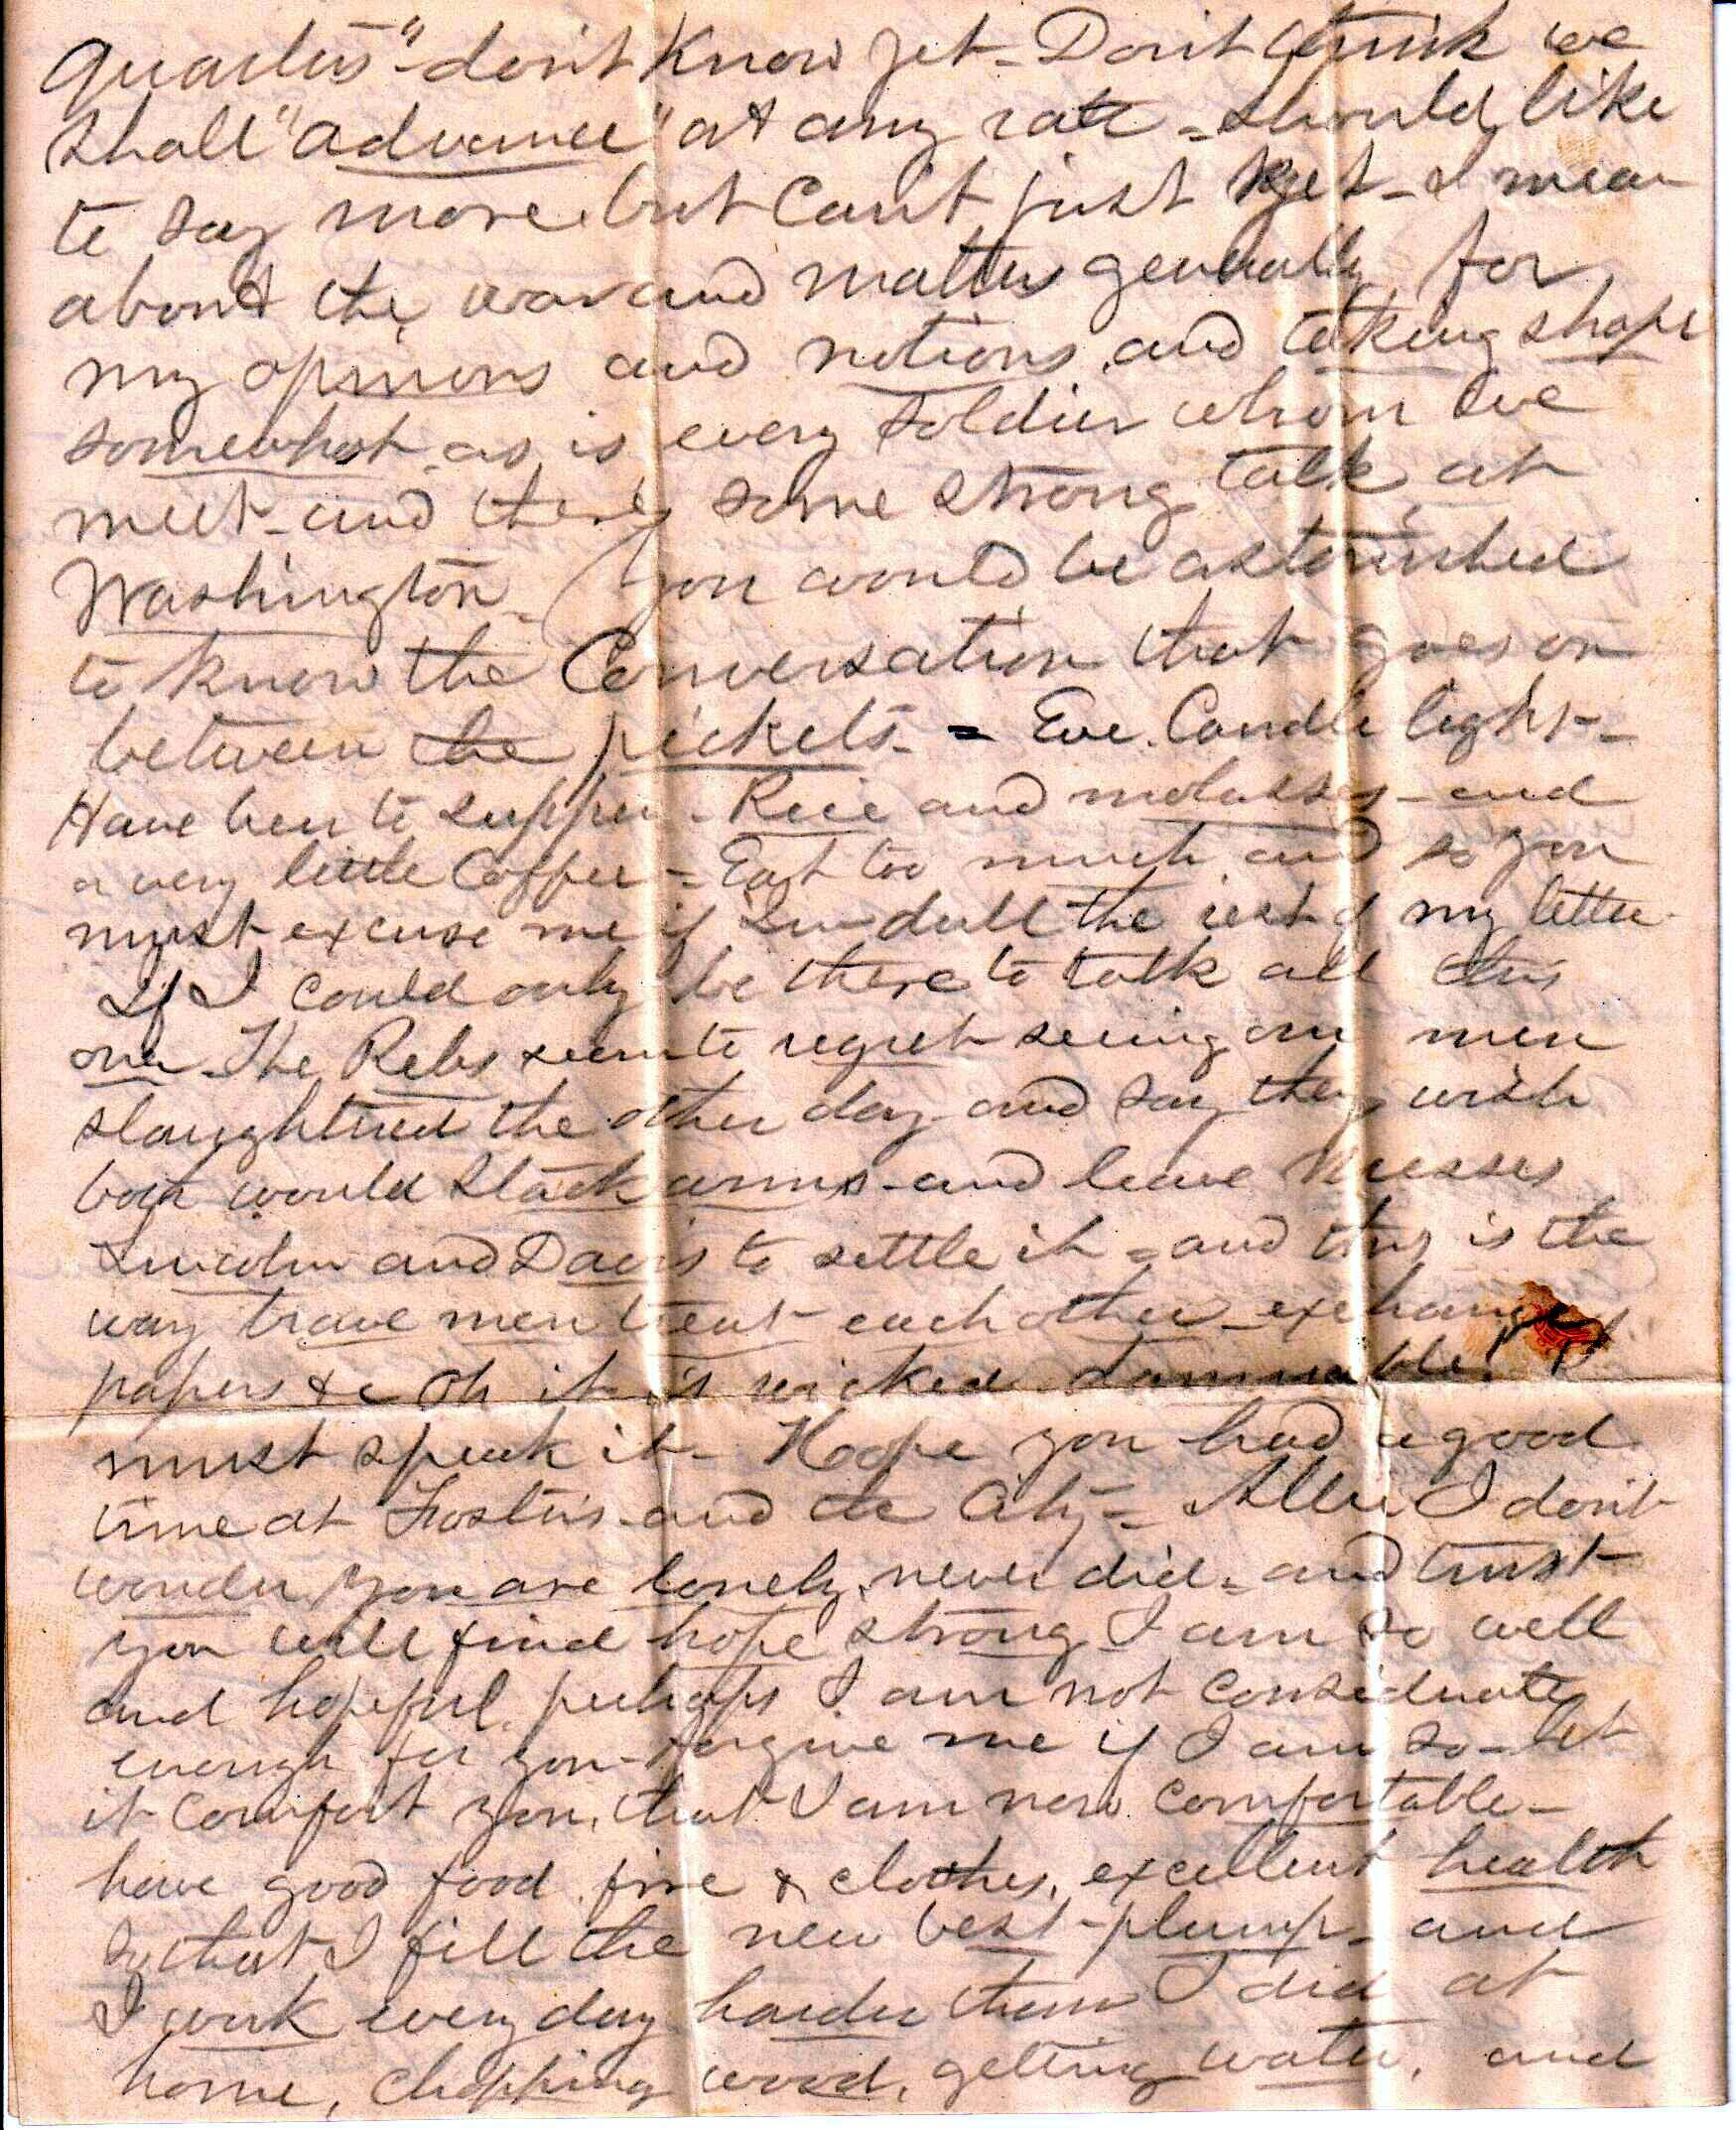 quarters" - don't Know yet - Don't think we
shall "advance" at any rate = should, like
to say more but Can't just yet - I mean
about the war and matters generally for
my opinions and notions and taking shape
somewhat as is every soldier whom we
meet - and there's some strong talk at
Washington - You would be astonished
to know the Conversation that goes on
between the pickets - = Eve. Candle light -
Have been to supper - Rice and molasses - and
a very little Coffee - = Eat too much and so you
must excuse me if I'm dull the rest of my letter -
If I could only be there to talk all this
over - The Rebs seem to regret seeing our men
slaughtred the other day - and say they wish
both would Stack arms - and leave Messrs
Lincoln and Davis to settle it = and this is the
way brave men treat each other - exchange
papers &c Oh it is wicked - damnable! I
must speak it - Hope you had a good
time at Foster's - and the City - = Allie I don't
wonder you are lonely, never did - and trust
you will find hope strong I am so well
and hopeful, perhaps I am not considerate
enough for you - forgive me if I am so - let
it comfort you, that I am now comfortable -
have good food, fire & clothes, excellent health
so that I fill the new vest - plump - and
I work every day harder than I did at
home, chopping wood, getting water, and